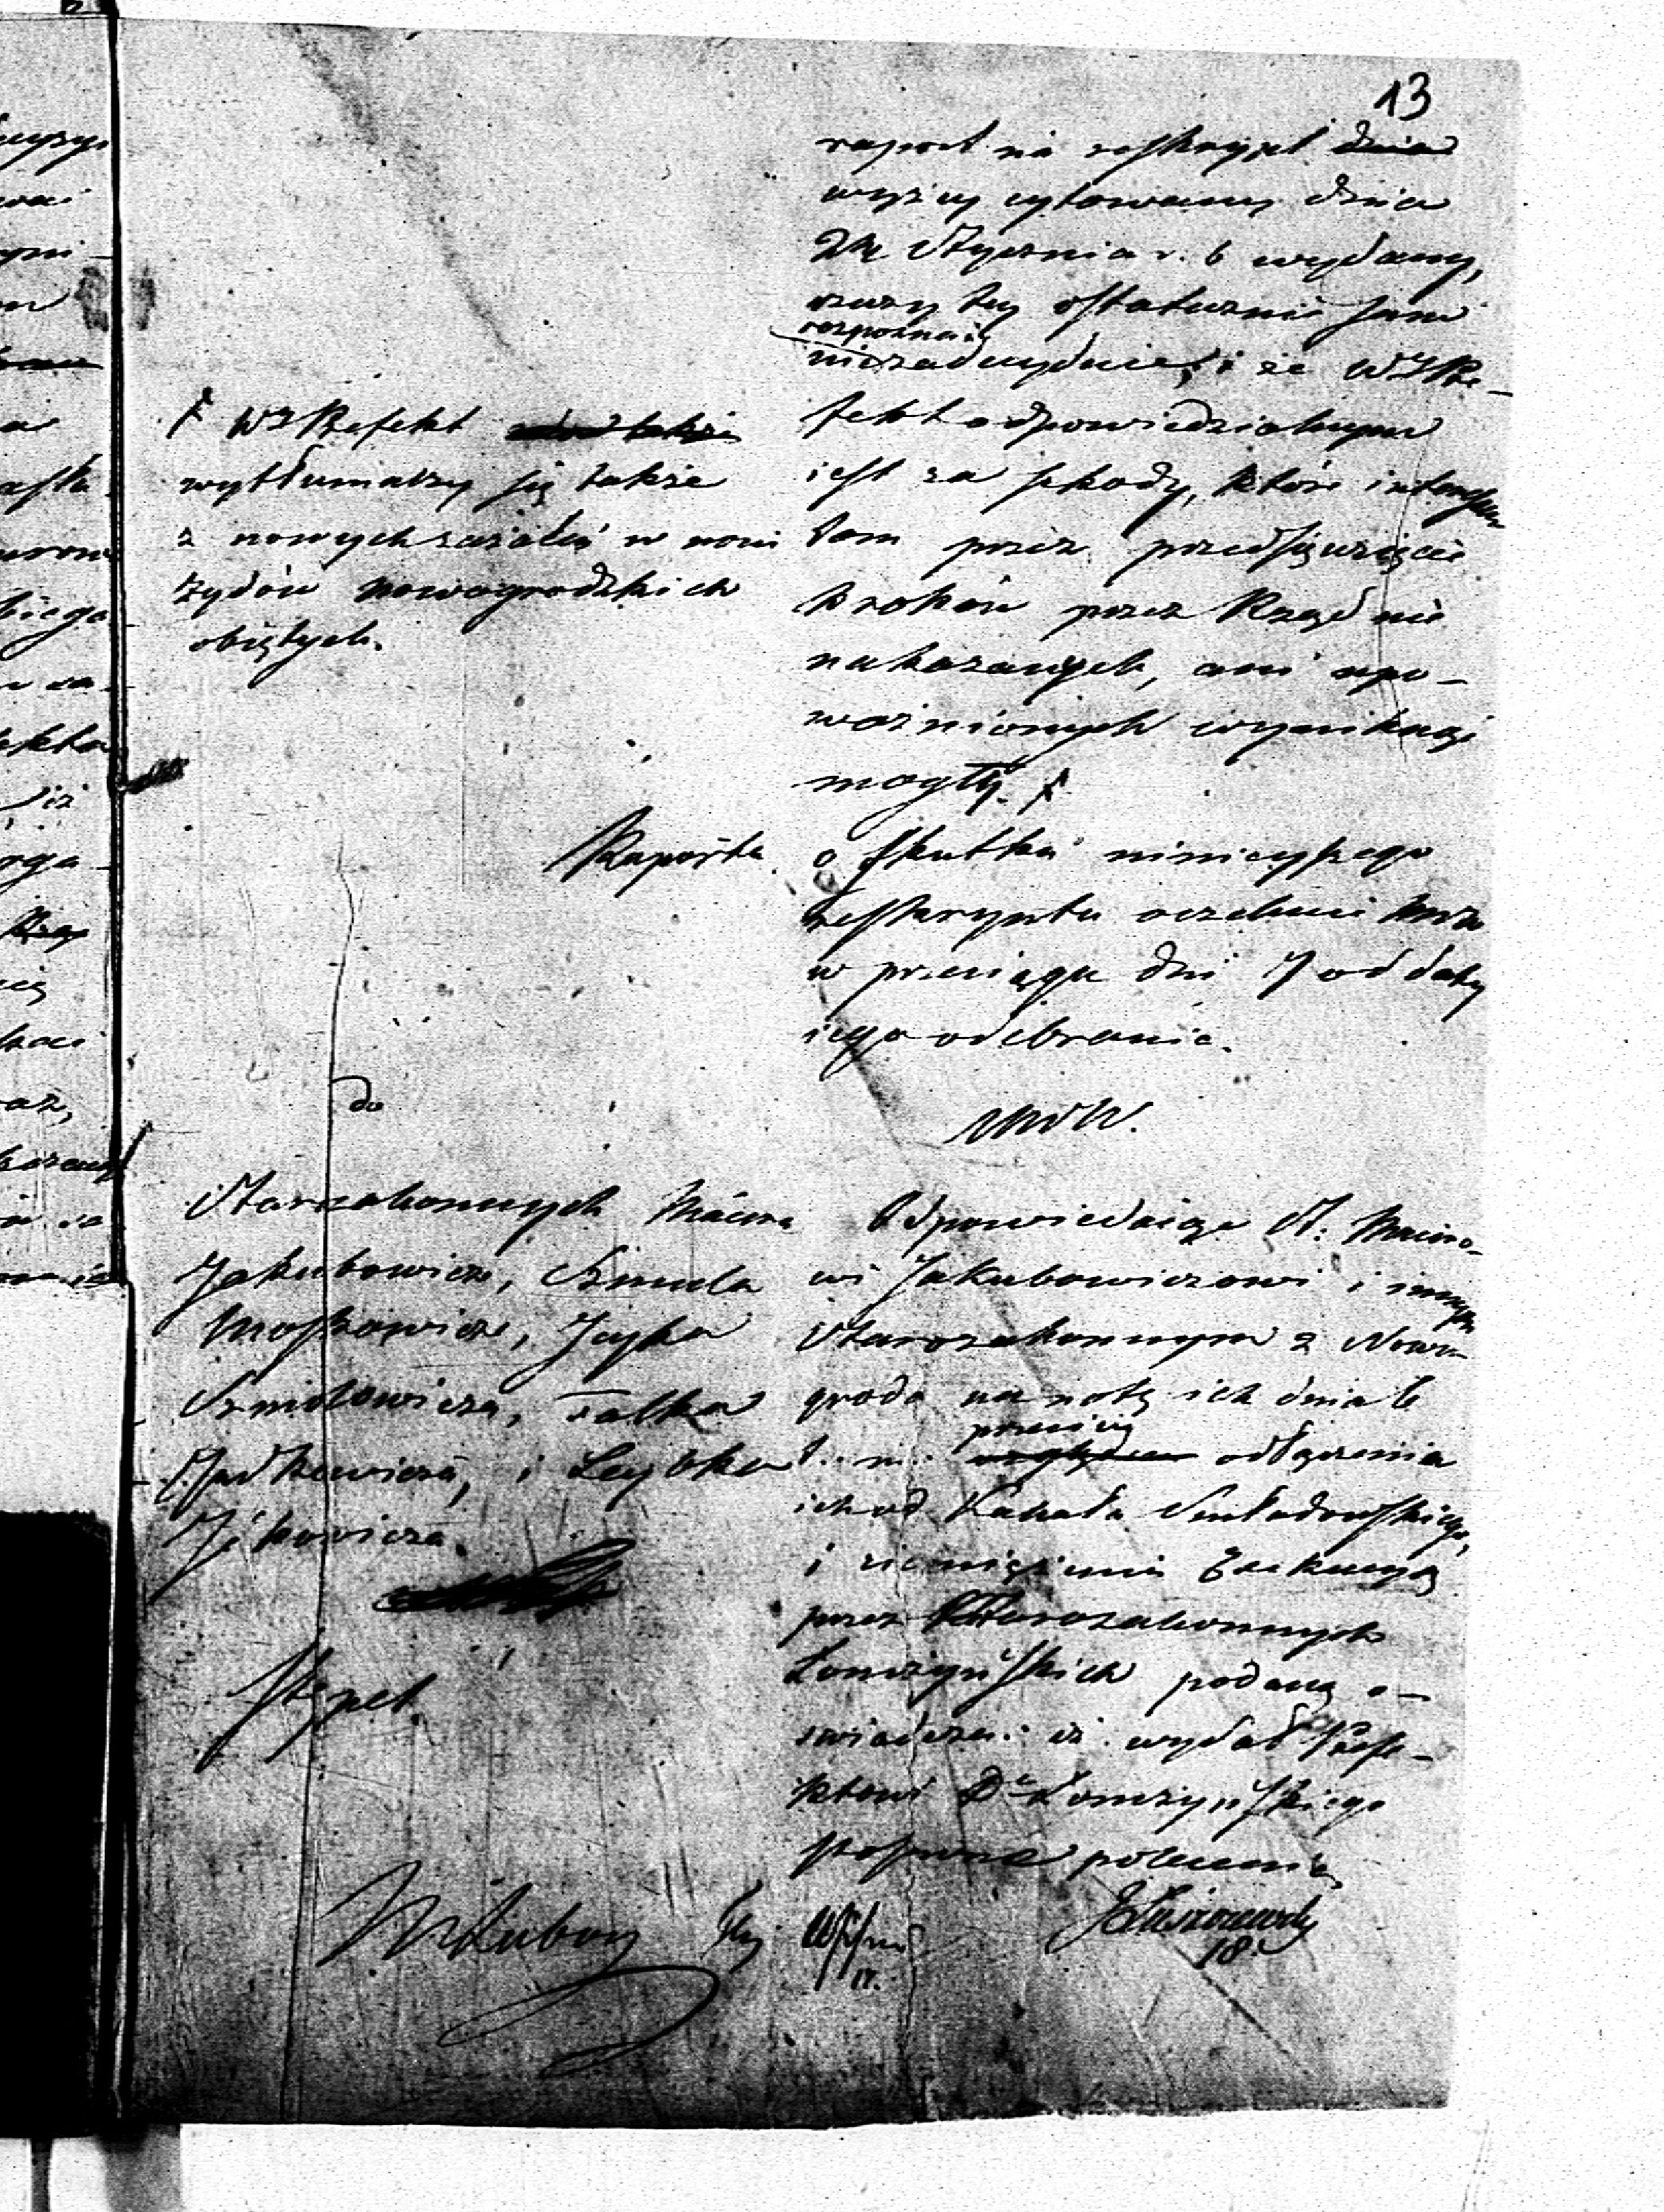 13
raport na reskrypt dnia
wyżey cytowany dnia
Stycznia r. b wydany,
rzeczy tey ostatecznie sam
rozpoznaie
nie zadecyduie, i że WJPre-
fekt odpowiedzialnym
iest za szkody, które interessan
tom przez przedsięwzięcie
kroków przez Rząd nie
nakazanych, ani upo-
ważnionych wyniknąć
mogły. ⊦
⊦ WJ Prefekt
wytłumaczy się także
z nowych zażaleń w nocie
Żydów nowogrodzkich
obiętych.
Raportu o skutku ninieyszego
reskryptu oczekuie
w przeciągu dni 7 od daty
iego odebrania.
MSW.
do
Starozakonnych
Jakubowicza, Szmula
Moszkowicza, Joska
Szmidowicza, Falka
Judkowicza, i Leybka
Odpowiedaiąc St:
wi Jakubowiczowi i innym
Starozakonnym z Nowo-
grodu na notę ich dnia
t. m. przeciw odłączenia
ich od Kahału Śniadowskiego,
i exekucyą
przez Starozakonnych
Łomżyńskich podaną o-
świadcza: iż wydał Prefe-
ktowi Dtu Łomżyńskiego
stosowne polecenia
Stępel.
18.